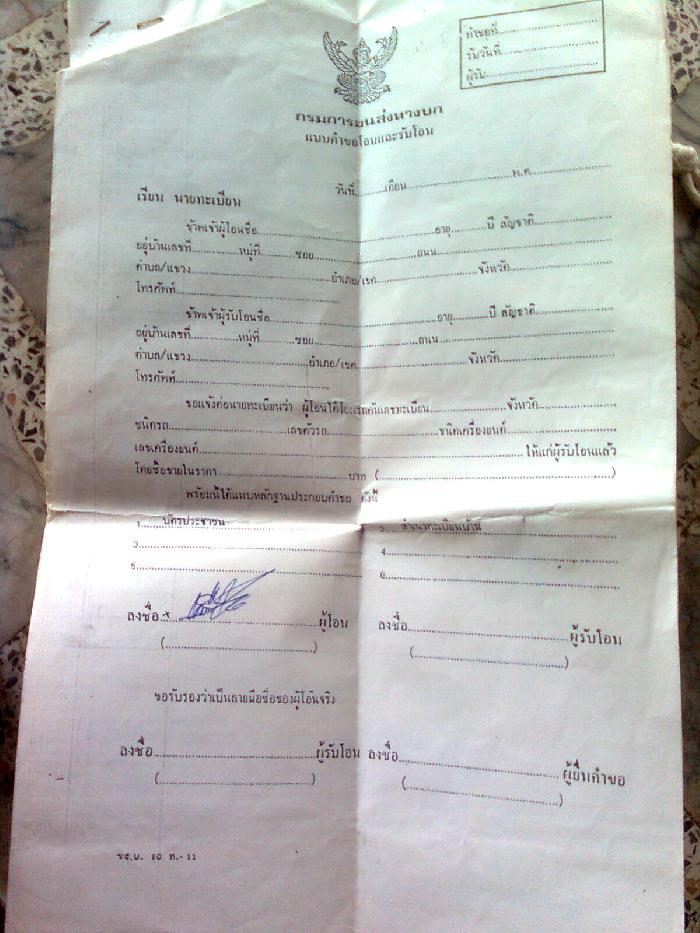 คำขอที่..............................
รับวันที่..............................
ผู้รับ..............................
กรมการขนส่งทางบก
แบบคำขอโอนและรับโอน
วันที่..........เดือน..............................พ.ศ..............................
เรียน นายทะเบียน
ข้าพเจ้าผู้โอนชื่อ..............................อายุ..........ปี สัญชาติ....................
อยู่บ้านเลขที่..........หมู่ที่..........ซอย..............................ถนน..............................
ตำบล/แขวง..............................อำเภอ/เขต..............................จังหวัด....................
โทรศัพท์..............................
ข้าพเจ้าผู้รับโอนชื่อ..............................อายุ..........ปี สัญชาติ....................
อยู่บ้านเลขที่..........หมู่ที่..........ซอย..............................ถนน..............................
ตำบล/แขวง..............................อำเภอ/เขต..............................จังหวัด....................
โทรศัพท์..............................
ขอแจ้งต่อนายทะเบียนว่า ผู้โอนได้โอนรถคันเลขทะเบียน....................จังหวัด....................
ชนิดรถ..............................เลขตัวรถ..............................ชนิดเครื่องยนต์....................
เลขเครื่องยนต์............................................................ให้แก่ผู้รับโอนแล้ว
โดยซื้อขายในราคา..............................บาท (..............................)
พร้อมนี้ได้แนบหลักฐานประกอบคำขอ ดังนี้
1. บัตรประชาชน 2. สำเนาทะเบียนบ้าน
3.............................. 4..............................
5.............................. 6..............................
ลงชื่อ..............................ผู้โอน ลงชื่อ..............................ผู้รับโอน
(..............................) (..............................)
ขอรับรองว่าเป็นลายมือชื่อของผู้โอนจริง
ลงชื่อ..............................ผู้รับโอน ลงชื่อ..............................ผู้ยื่นคำขอ
(..............................) (..............................)